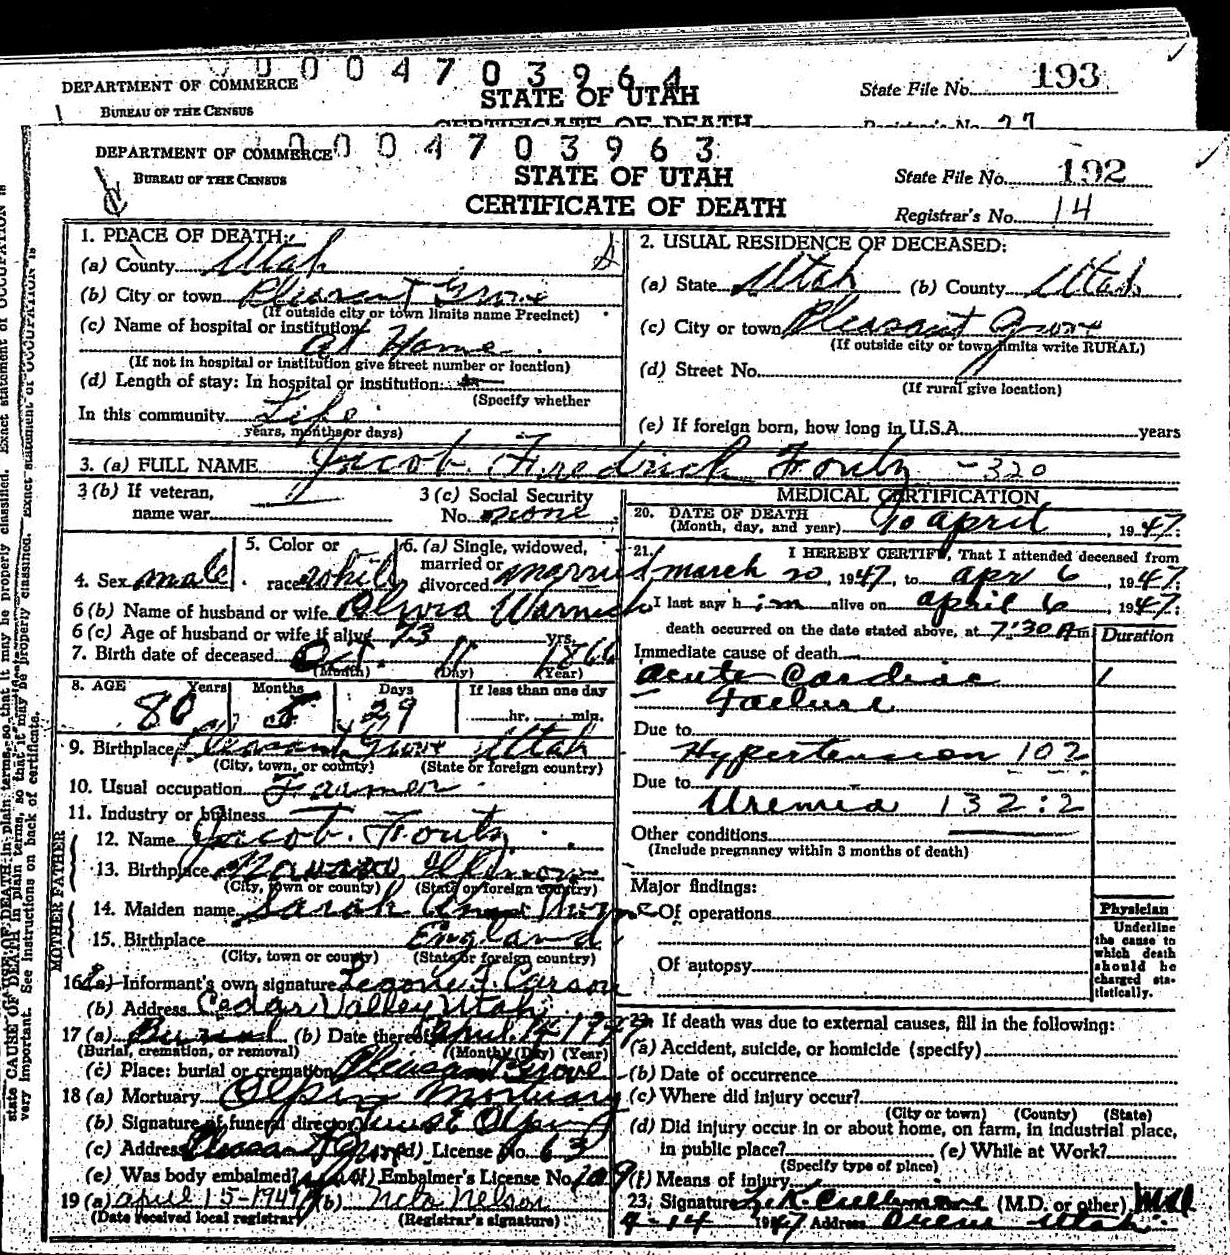 0004703964
DEPARTMENT OF COMMERCE
BUREAU OF THE CENSUS
STATE OF UTAH
CERTIFICATE OF DEATH
State File No. 193
Registrar's No. 27
0004703963
DEPARTMENT OF COMMERCE
BUREAU OF THE CENSUS
STATE OF UTAH
CERTIFICATE OF DEATH
State File No. 192
Registrar's No. 14
1. PLACE OF DEATH:
(a) County Utah
(b) City or town Pleasant Grove
(If outside city or town limits name Precinct)
(c) Name of hospital or institution
At Home
(If not in hospital or institution give street number or location)
(d) Length of stay: In hospital or institution:
(Specify whether
In this community Life
years, months or days)
2. USUAL RESIDENCE OF DECEASED:
(a) State Utah (b) County Utah
(c) City or town Pleasant Grove
(If outside city or town limits write RURAL)
(d) Street No.
(If rural give location)
(e) If foreign born, how long in U.S.A. years
3. (a) FULL NAME Jacob Fredrick Foutz -320
3 (b) If veteran,
name war
3 (c) Social Security
No. none
4. Sex male
5. Color or
race white
6. (a) Single, widowed,
married or
divorced married
6 (b) Name of husband or wife Olivia Warnick
6 (c) Age of husband or wife if alive 73 yrs.
7. Birth date of deceased Oct. 11 1866
(Month) (Day) (Year)
8. AGE Years Months Days If less than one day
80 29 hr. min.
9. Birthplace Pleasant Grove Utah
(City, town, or county) (State or foreign country)
10. Usual occupation Farmer
11. Industry or business
FATHER
12. Name Jacob Foutz
13. Birthplace
(City, town or county) (State or foreign country)
MOTHER
14. Maiden name Sarah Ann Thorne
15. Birthplace England
(City, town or county) (State or foreign country)
16 (a) Informant's own signature Leone F. Carson
(b) Address Cedar Valley Utah
17 (a) Burial (b) Date thereof April 14 1947
(Burial, cremation, or removal) (Month) (Day) (Year)
(c) Place: burial or cremation Pleasant Grove
18 (a) Mortuary Olpin Mortuary
(b) Signature of funeral director Olpin
(c) Address Pleasant Grove (d) License No. 63
(e) Was body embalmed? yes (f) Embalmer's License No. 209
19 (a) April 15-1947 (b) Neta Nelson
(Date received local registrar) (Registrar's signature)
MEDICAL CERTIFICATION
20. DATE OF DEATH
(Month, day, and year) 10 April, 1947.
21. I HEREBY CERTIFY, That I attended deceased from
March 20, 1947, to Apr 6, 1947;
I last saw him alive on April 6, 1947;
death occurred on the date stated above, at 7:30 A m.
Duration
Immediate cause of death
Acute Cardiac 1
Failure
Due to
Hypertension 102
Due to
Uremia 132:2
Other conditions
(Include pregnancy within 3 months of death)
Major findings:
Of operations
Of autopsy
Physician
Underline
the cause to
which death
should be
charged sta-
tistically.
22. If death was due to external causes, fill in the following:
(a) Accident, suicide, or homicide (specify)
(b) Date of occurrence
(c) Where did injury occur?
(City or town) (County) (State)
(d) Did injury occur in or about home, on farm, in industrial place,
in public place? (e) While at Work?
(Specify type of place)
(f) Means of injury
23. Signature K. Cullimore (M.D. or other) MD
4-14 1947 Address Orem Utah